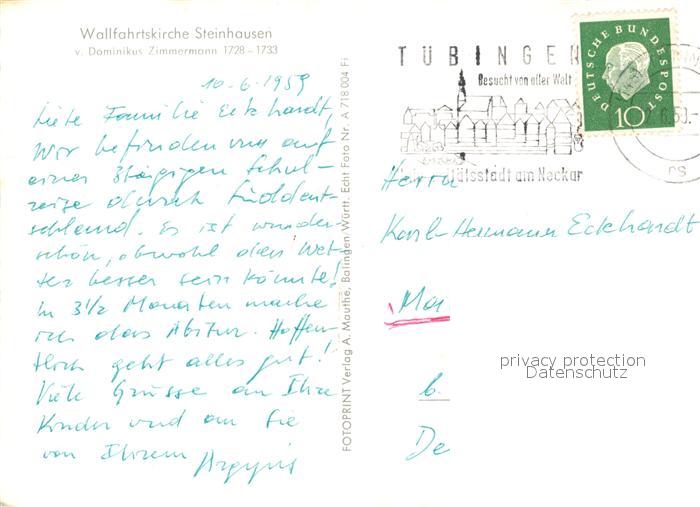 Wallfahrtskirche Steinhausen
v. Dominikus Zimmermann 1728–1733
10.6.1959
Liebe Familie Eckhardt,
Wir befinden uns auf
einer 3tägigen Schul-
reise durch Süddeut-
schland. Es ist wunder-
schön, obwohl das Wet-
ter besser sein könnte!
In 3½ Monaten mache
ich das Abitur. Hoffen-
tlich geht alles gut!
Viele Grüsse an Ihre
Kinder und an Sie
von Ihrem Argyris
FOTOPRINT Verlag A. Mauthe, Balingen Württ. Echt Foto Nr. A 718 004 Fi
TÜBINGEN
Besucht von aller Welt
tätsstadt am Neckar
DEUTSCHE BUNDESPOST
10
Herrn
Karl-Hermann Eckhardt
Mar
b.
De
privacy protection
Datenschutz